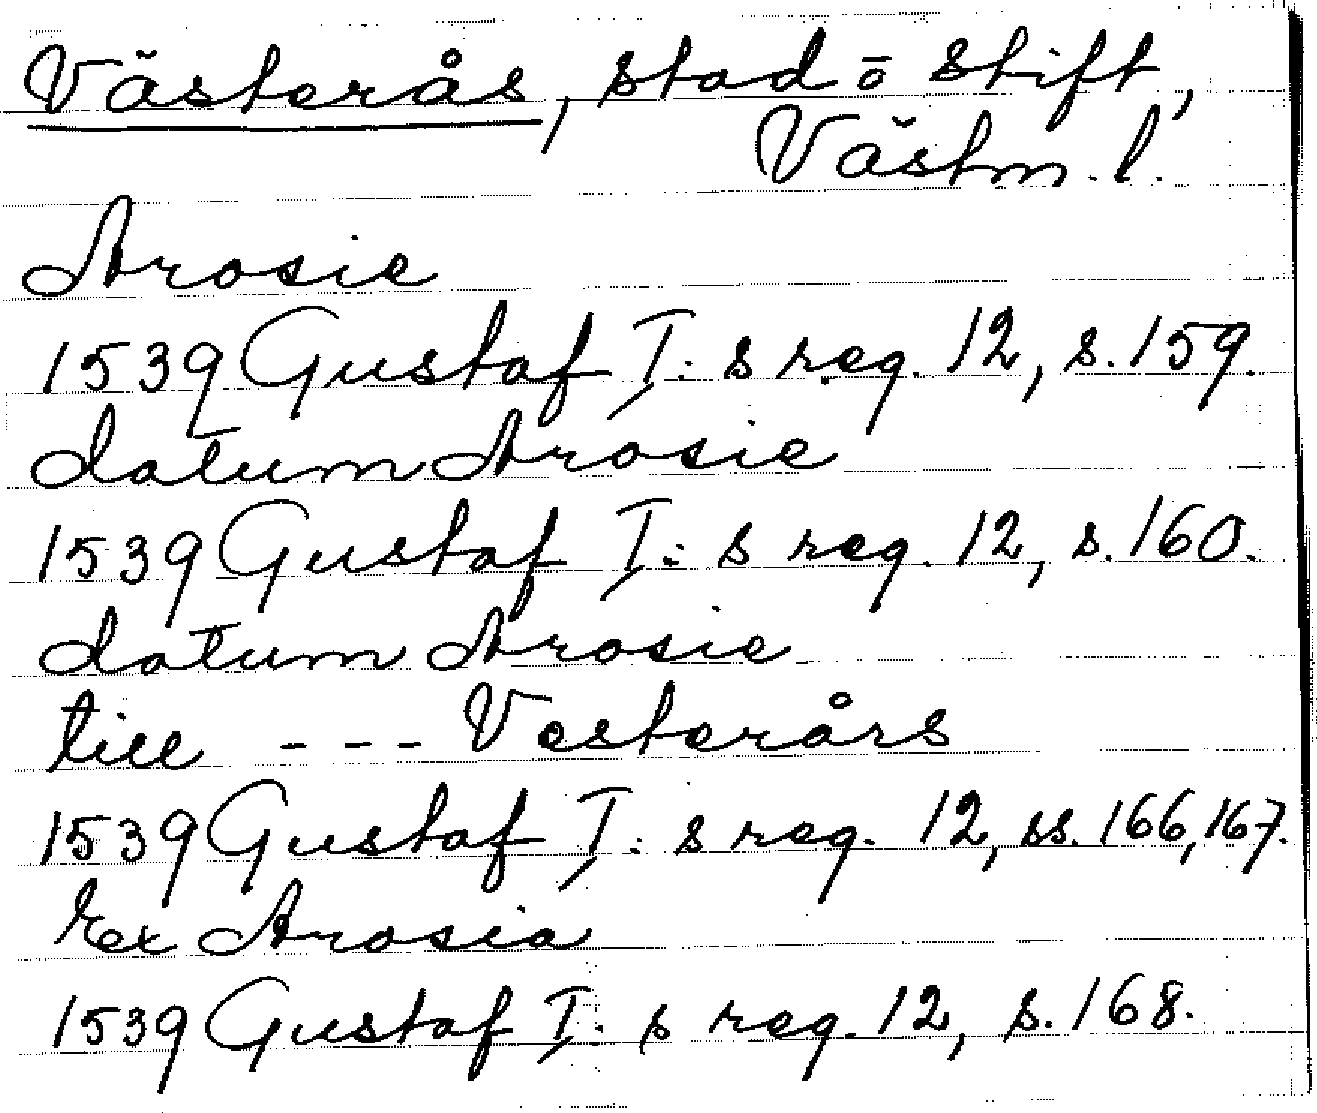 Västerås, stad o stift,
Västm. l.
Arosie
1539 Gustaf I: s reg. 12, s. 159.
datum Arosie
1539 Gustaf I: s reg. 12, s. 160.
datum Arosie
till - - - Vesterårs
1539 Gustaf I: s reg. 12, ss. 166, 167.
Ex Arosia
1539 Gustaf I: s reg. 12, s. 168.